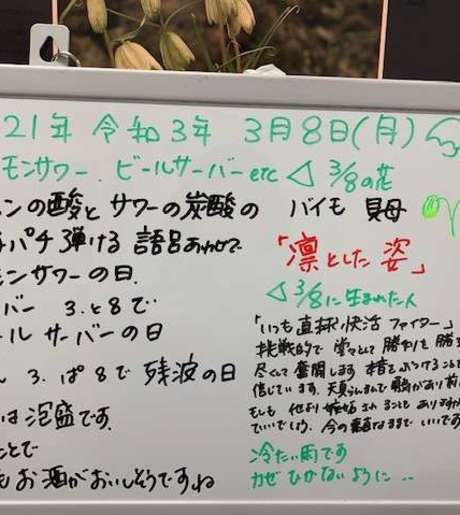 21年 令和3年 3月8日(月)
モンサワー、ビールサーバー etc ◁ 3/8の花
ンの酸とサワーの炭酸の
パチ弾ける 語呂あわせで
モンサワーの日.
バー 3.と8で
ール サーバーの日
3. ぱ8で 残波の日
は泡盛です.
ことで
もお酒がおいしそうですね
バイモ 貝母
「凛とした 姿」
◁ 3/8に生まれた人
「いつも直球快活 ファイター」
挑戦的で 堂々として 勝利を 勝
尽くして 奮闘します.
信じています. 天真らんまんで
もしも 他より 嫉妬 されることも
ていいでしょう. 今の素直なままで いいです
冷たい雨です
カゼ ひかないように..